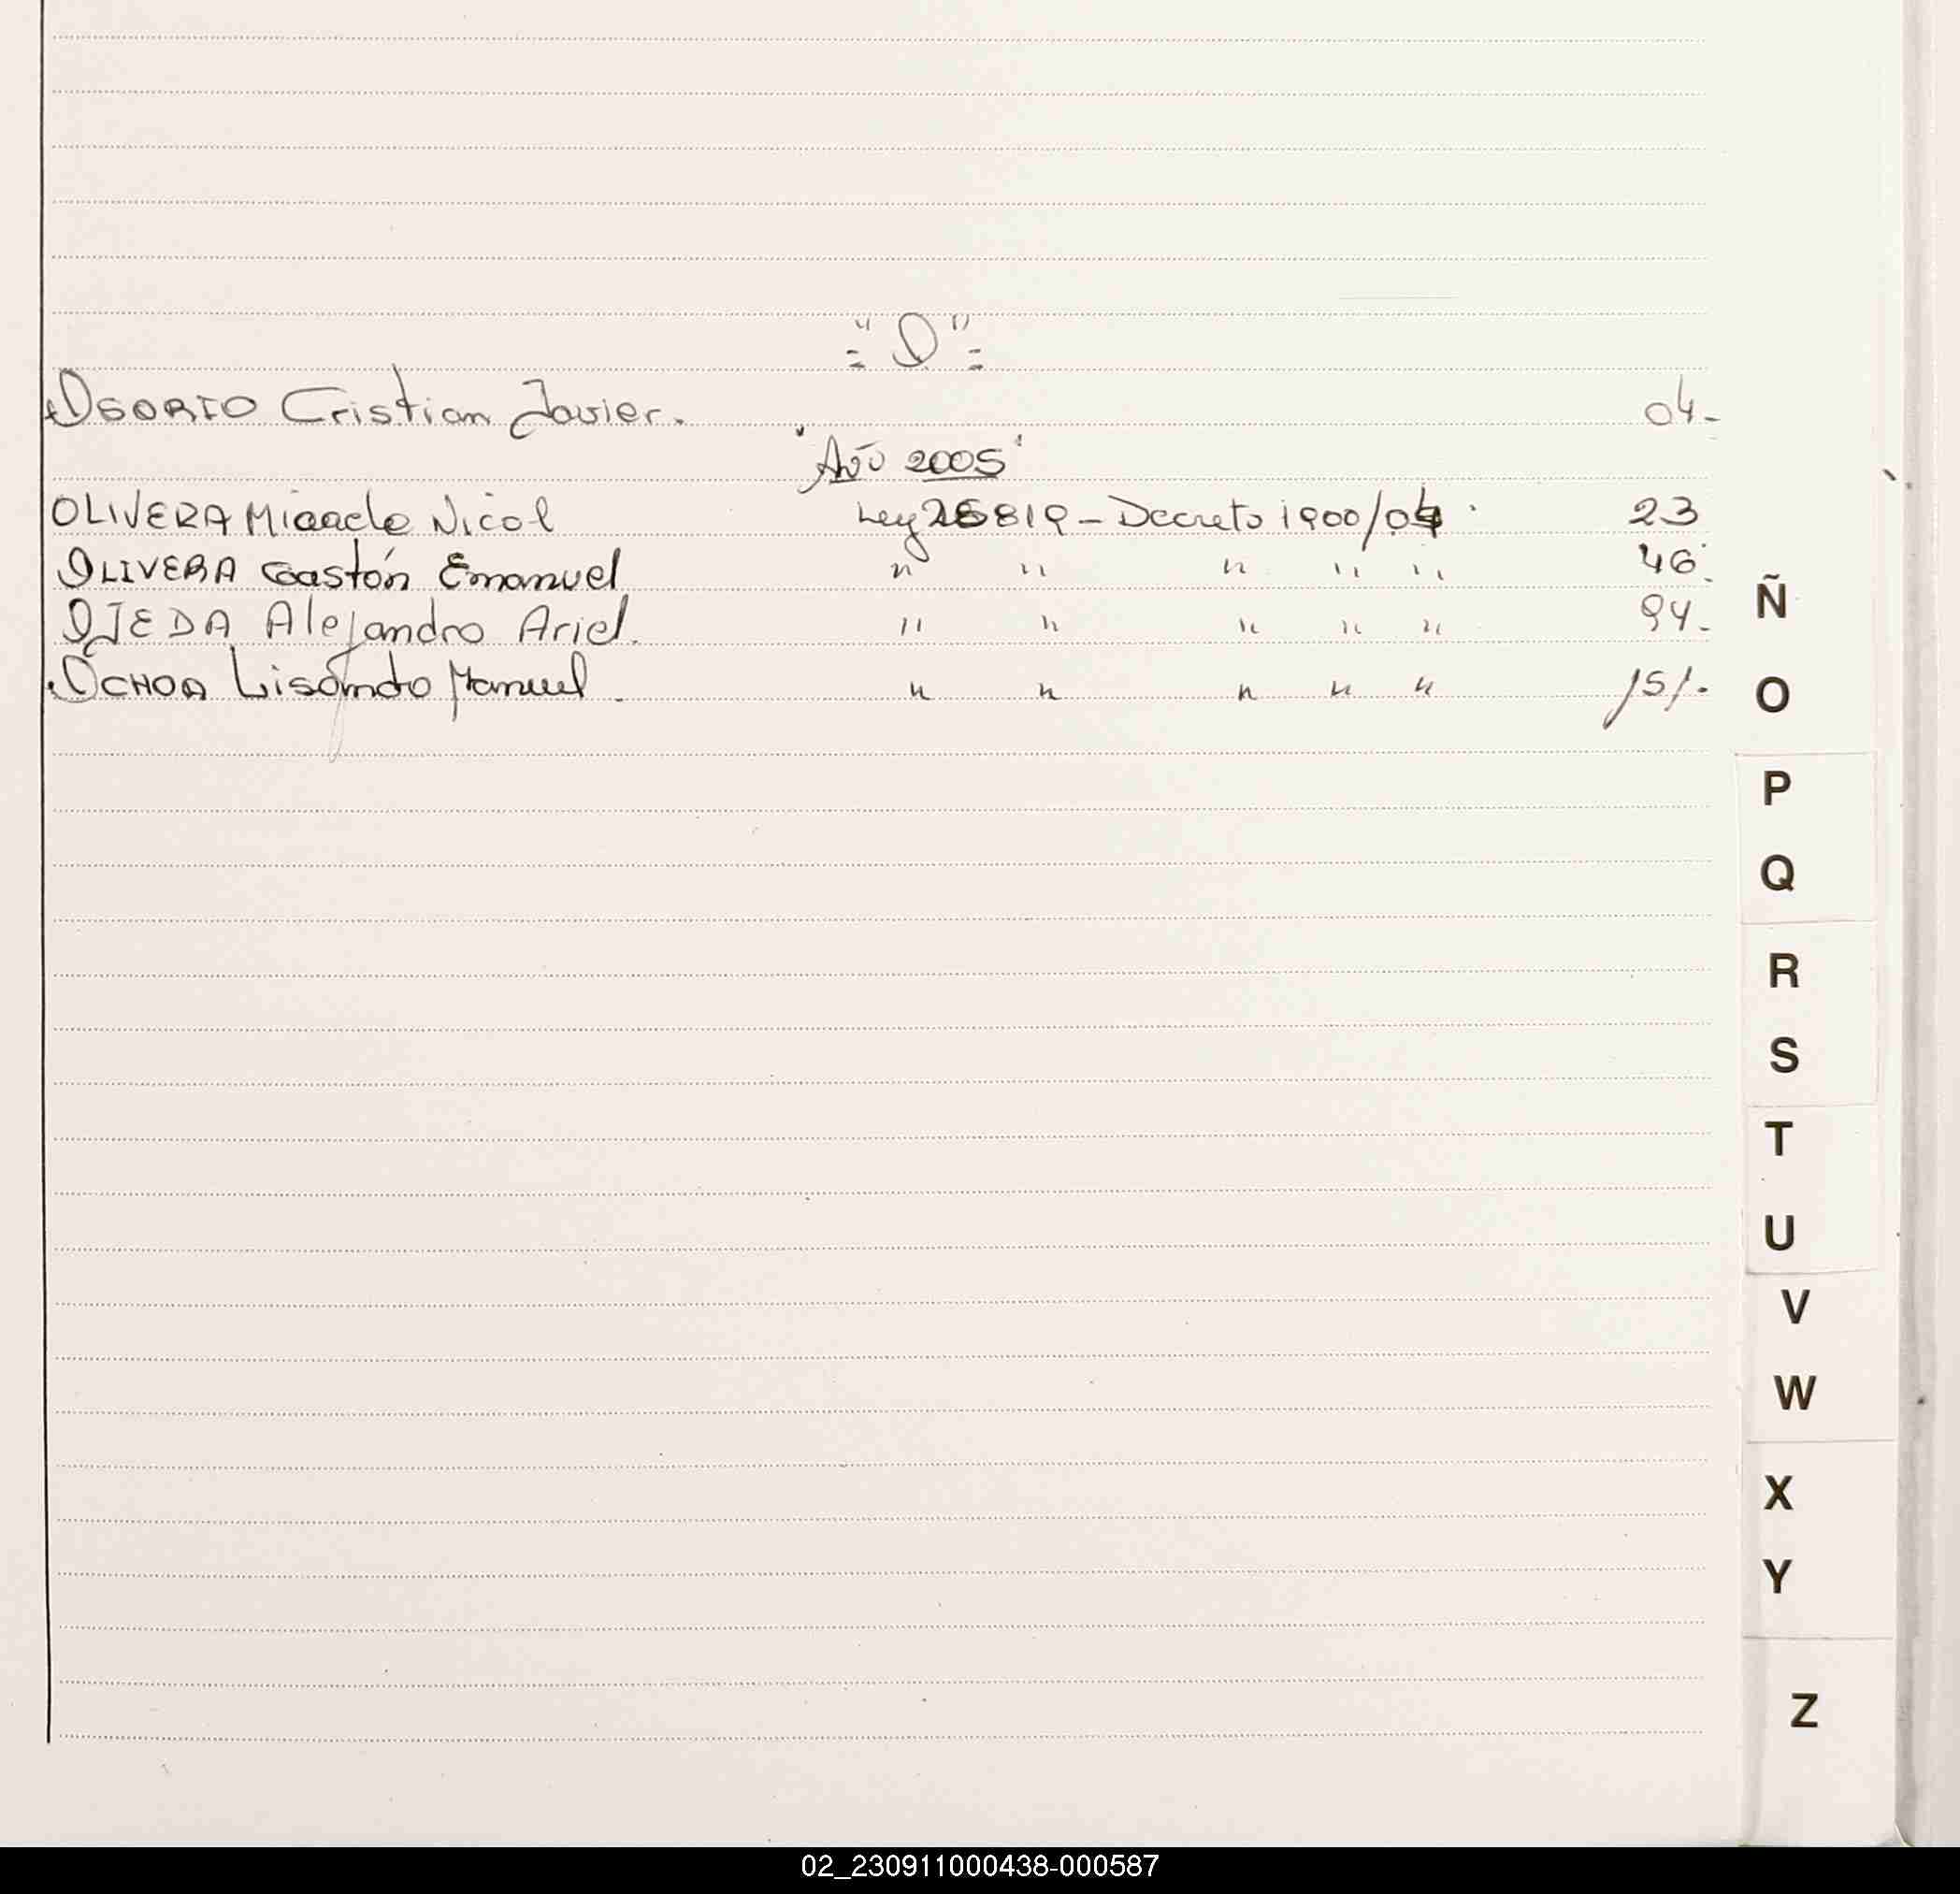 "O"
OSORIO Cristian Javier. 04-
"Año 2005"
OLIVERA Micaela Nicol Ley 25819 - Decreto 1900/04. 23
OLIVERA Gastón Emanuel " " " " " 46.
OJEDA Alejandro Ariel. " " " " " 94.
OCHOA Lisandro Manuel. " " " " " 151.
Ñ
O
P
Q
R
S
T
U
V
W
X
Y
Z
02_230911000438-000587